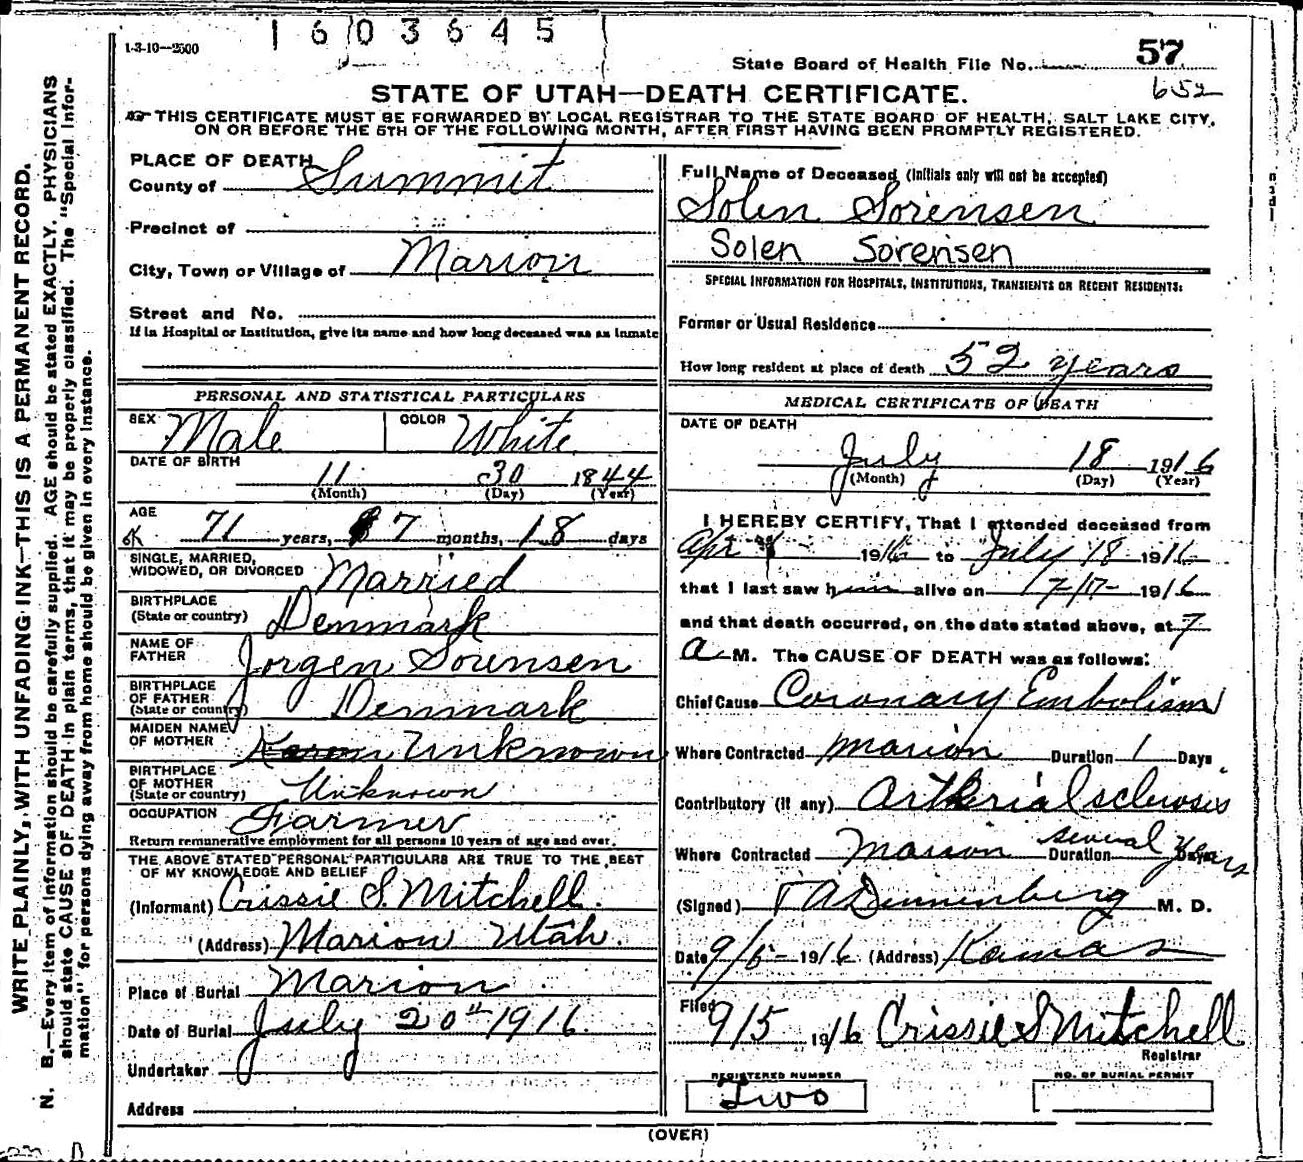 1603645
1-3-10—2500
State Board of Health File No. 57
652
STATE OF UTAH—DEATH CERTIFICATE.
THIS CERTIFICATE MUST BE FORWARDED BY LOCAL REGISTRAR TO THE STATE BOARD OF HEALTH, SALT LAKE CITY,
ON OR BEFORE THE 5TH OF THE FOLLOWING MONTH, AFTER FIRST HAVING BEEN PROMPTLY REGISTERED.
WRITE PLAINLY, WITH UNFADING INK—THIS IS A PERMANENT RECORD.
N. B.—Every item of information should be carefully supplied. AGE should be stated EXACTLY. PHYSICIANS
should state CAUSE OF DEATH in plain terms, that it may be properly classified. The "Special Infor-
mation" for persons dying away from home should be given in every instance.
PLACE OF DEATH
County of Summit
Precinct of
City, Town or Village of Marion
Street and No.
If in Hospital or Institution, give its name and how long deceased was an inmate
PERSONAL AND STATISTICAL PARTICULARS
SEX Male COLOR White
DATE OF BIRTH
11 30 1844
(Month) (Day) (Year)
AGE
ok 71 years, 7 months, 18 days
SINGLE, MARRIED,
WIDOWED, OR DIVORCED Married
BIRTHPLACE
(State or country) Denmark
NAME OF
FATHER Jorgen Sorensen
BIRTHPLACE
OF FATHER
(State or country) Denmark
MAIDEN NAME
OF MOTHER Karen Unknown
BIRTHPLACE
OF MOTHER
(State or country) Unknown
OCCUPATION Farmer
Return remunerative employment for all persons 10 years of age and over.
THE ABOVE STATED PERSONAL PARTICULARS ARE TRUE TO THE BEST
OF MY KNOWLEDGE AND BELIEF
(Informant) Crissie S. Mitchell.
(Address) Marion Utah.
Place of Burial Marion.
Date of Burial July 20th 1916.
Undertaker
Address
Full Name of Deceased (Initials only will not be accepted)
Solen Sorensen
Solen Sorensen
SPECIAL INFORMATION FOR HOSPITALS, INSTITUTIONS, TRANSIENTS OR RECENT RESIDENTS:
Former or Usual Residence
How long resident at place of death 52 years
MEDICAL CERTIFICATE OF DEATH
DATE OF DEATH
July 18 1916
(Month) (Day) (Year)
I HEREBY CERTIFY, That I attended deceased from
Apr 1916 to July 18 1916
that I last saw him alive on 7/17- 1916
and that death occurred, on the date stated above, at 7
a M. The CAUSE OF DEATH was as follows:
Chief Cause Coronary Embolism
Where Contracted Marion Duration 1 Days
Contributory (if any) Artherial sclerosis
Where Contracted Marion Duration several years Days
(Signed) M. D.
Date 9/5- 1916 (Address) Kamas
Filed 9/5 1916 Crissie S Mitchell
Registrar
REGISTERED NUMBER
Two
NO. OF BURIAL PERMIT
(OVER)